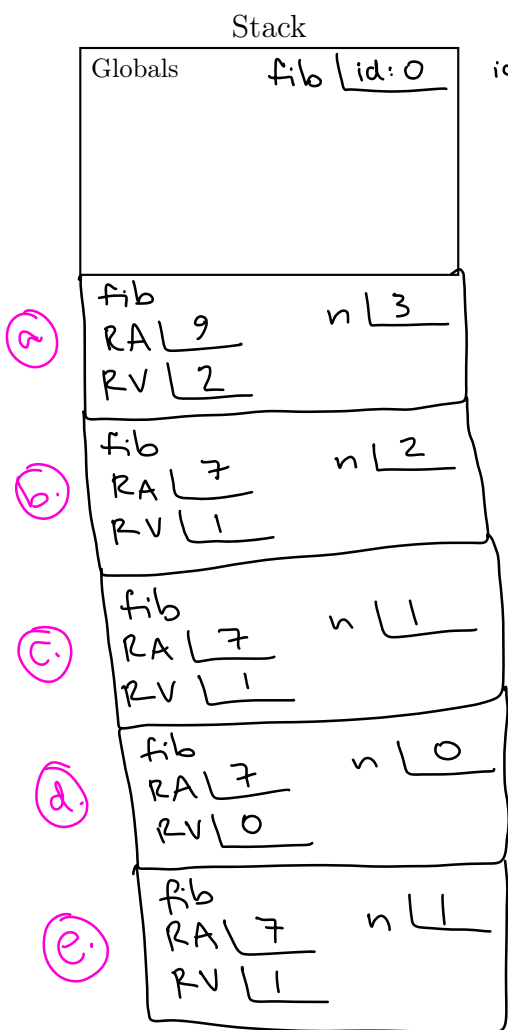 Stack
Globals fib id: 0
fib
n 3
RA 9
RV 2
a
fib
n 2
RA 7
RV 1
b.
fib
n 1
RA 7
RV 1
c.
fib
n 0
RA 7
RV 0
d.
fib
n 1
RA 7
RV 1
e.